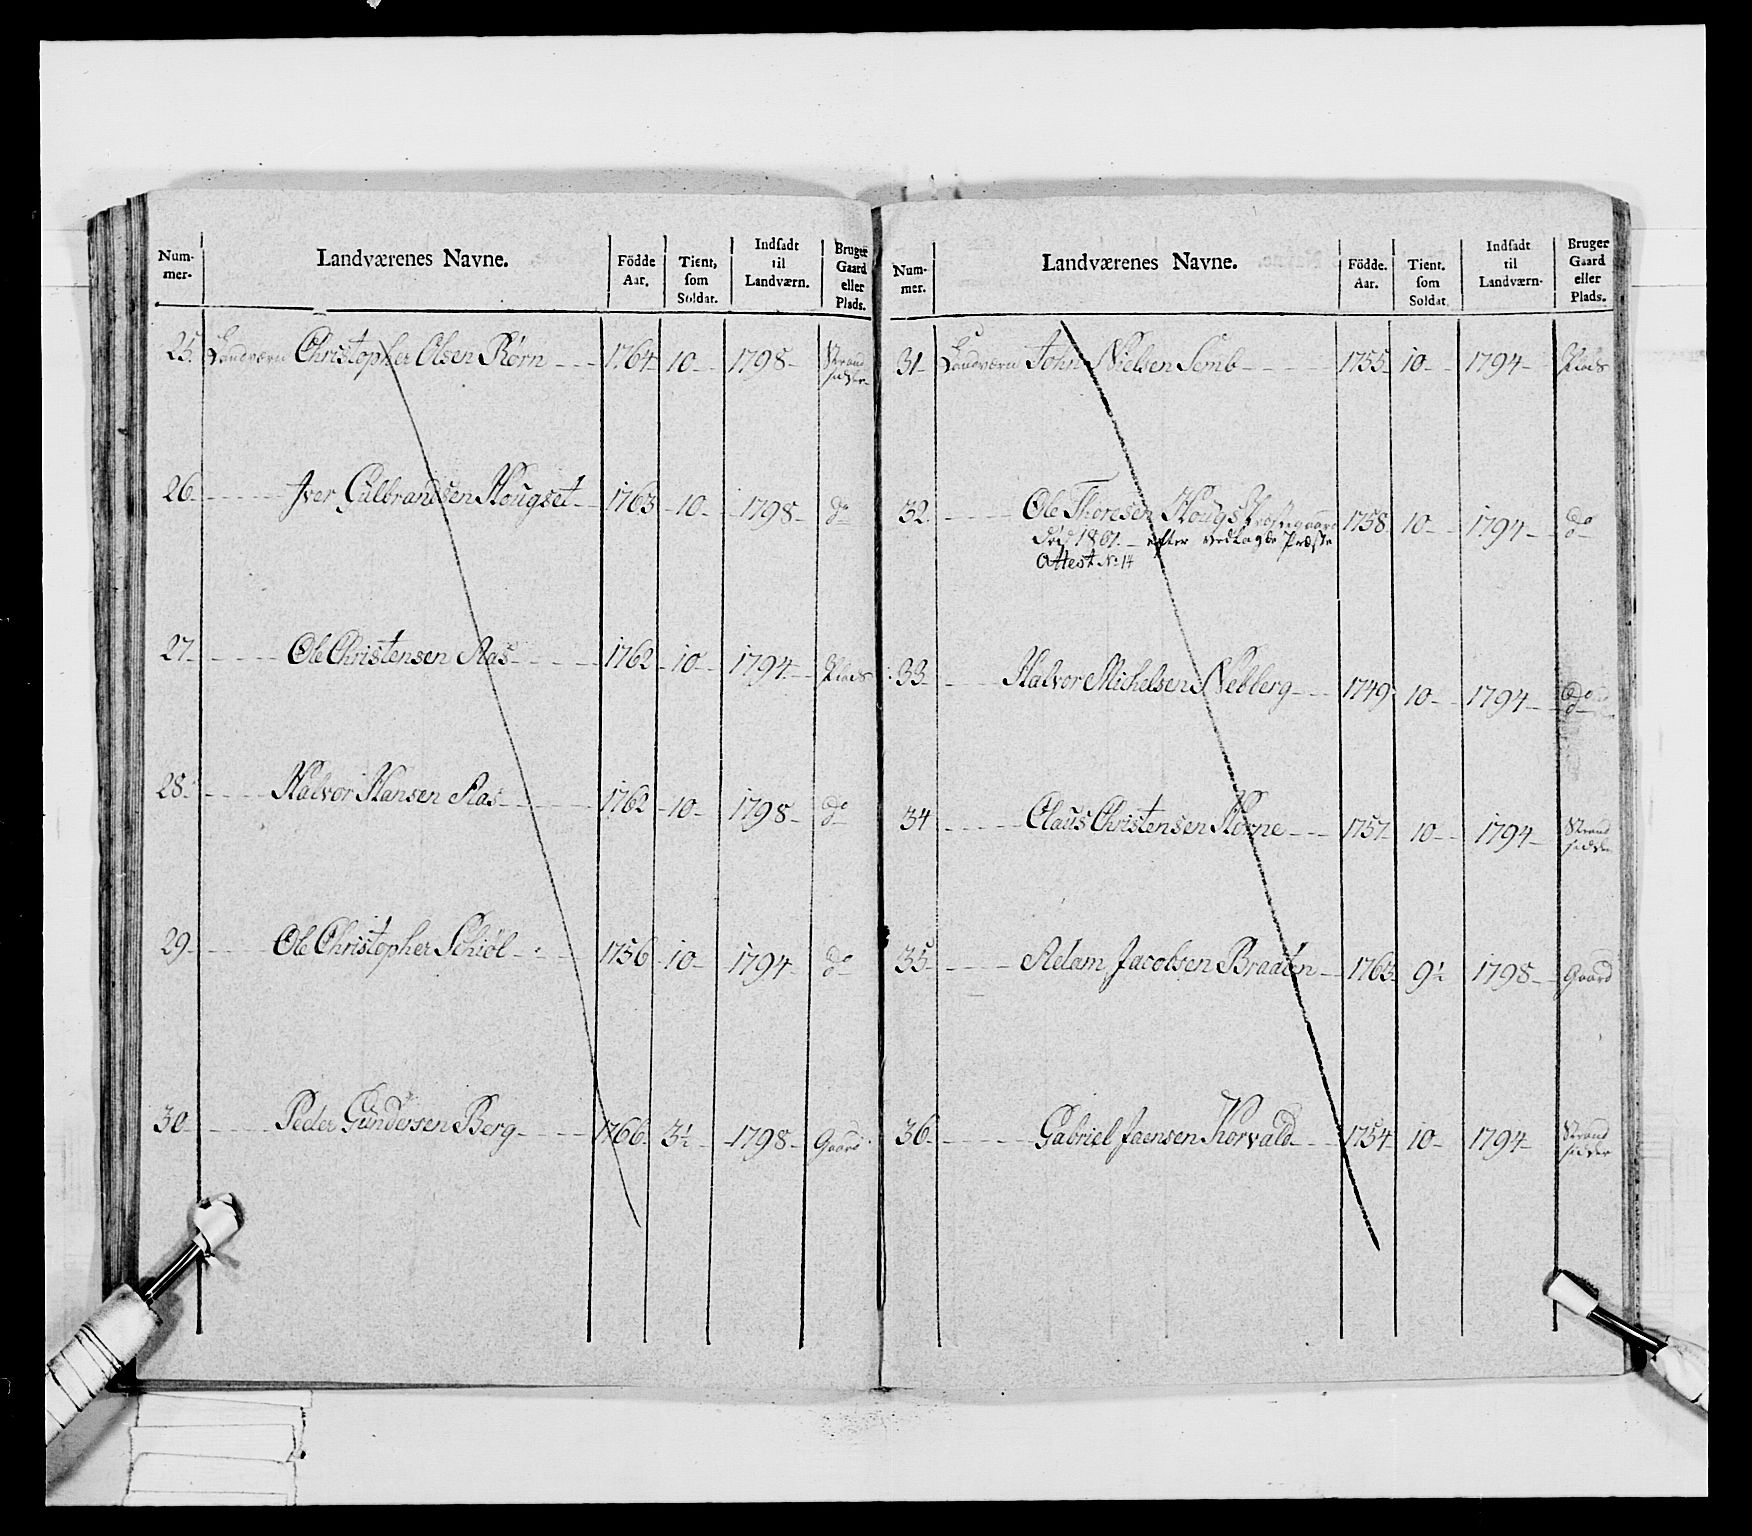 Num-
mer.
Landværenes Navne.
Födde
Aar.
Tient,
som
Soldat.
Indsadt
til
Landværn.
Bruger
Gaard
eller
Plads.
25. Landværn Christopher Olsen Rørn 1764 10 1798 Strand
sidder
26. Iver Gulbrandsen Hougset 1763 10 1798 do
27. Ole Christensen Aas 1762 10 1794 Plads
28. Halvor Hansen Aas 1762 10 1798 do
29. Ole Christopher Schiøl 1756 10 1794 do
30. Peder Gundersen Berg 1766 3½ 1798 Gaard
Num-
mer.
Landværenes Navne.
Födde.
Aar.
Tient.
som
Soldat.
Indsadt
til
Landværn.
Bruger
Gaard
eller
Plads.
31 Landværn John Nielsen Semb 1755 10 1794 Plads
32. Ole Thoresen Hougs 1758 10 1794 do
Død 1801. efter vedlagde Præste
Attest No 14
33. Halvor Michelsen Nebberg 1749 10 1794 do
34 Claus Christensen Horne 1757 10 1794 Strand
sidder
35. Adam Jacobsen Braaten 1763 9½ 1798 Gaard
36. Gabriel Jaensen Korvald 1754 10 1794 Strand
sidder